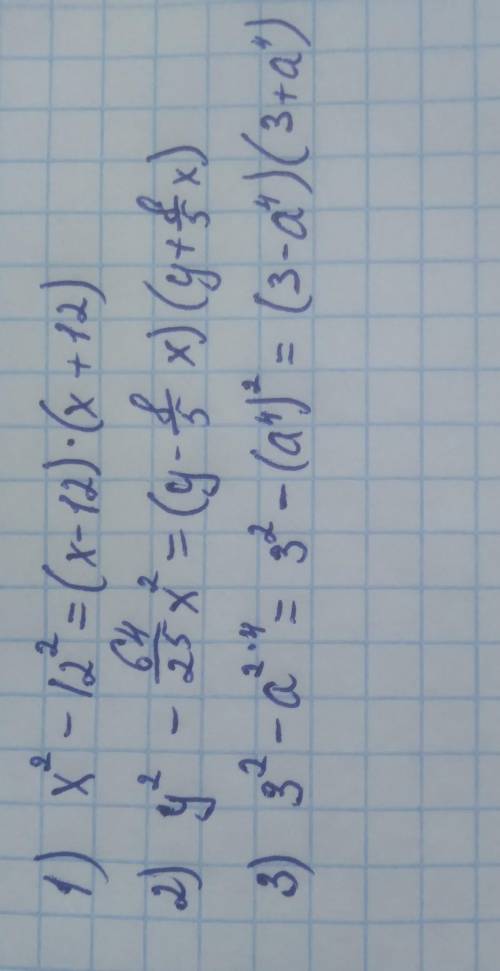 1) x² - 12² = (x - 12)·(x + 12)
2) y² - 64/25 x² = (y - 8/5 x)(y + 8/5 x)
3) 3² - a^(2·4) = 3² - (a⁴)² = (3 - a⁴)(3 + a⁴)